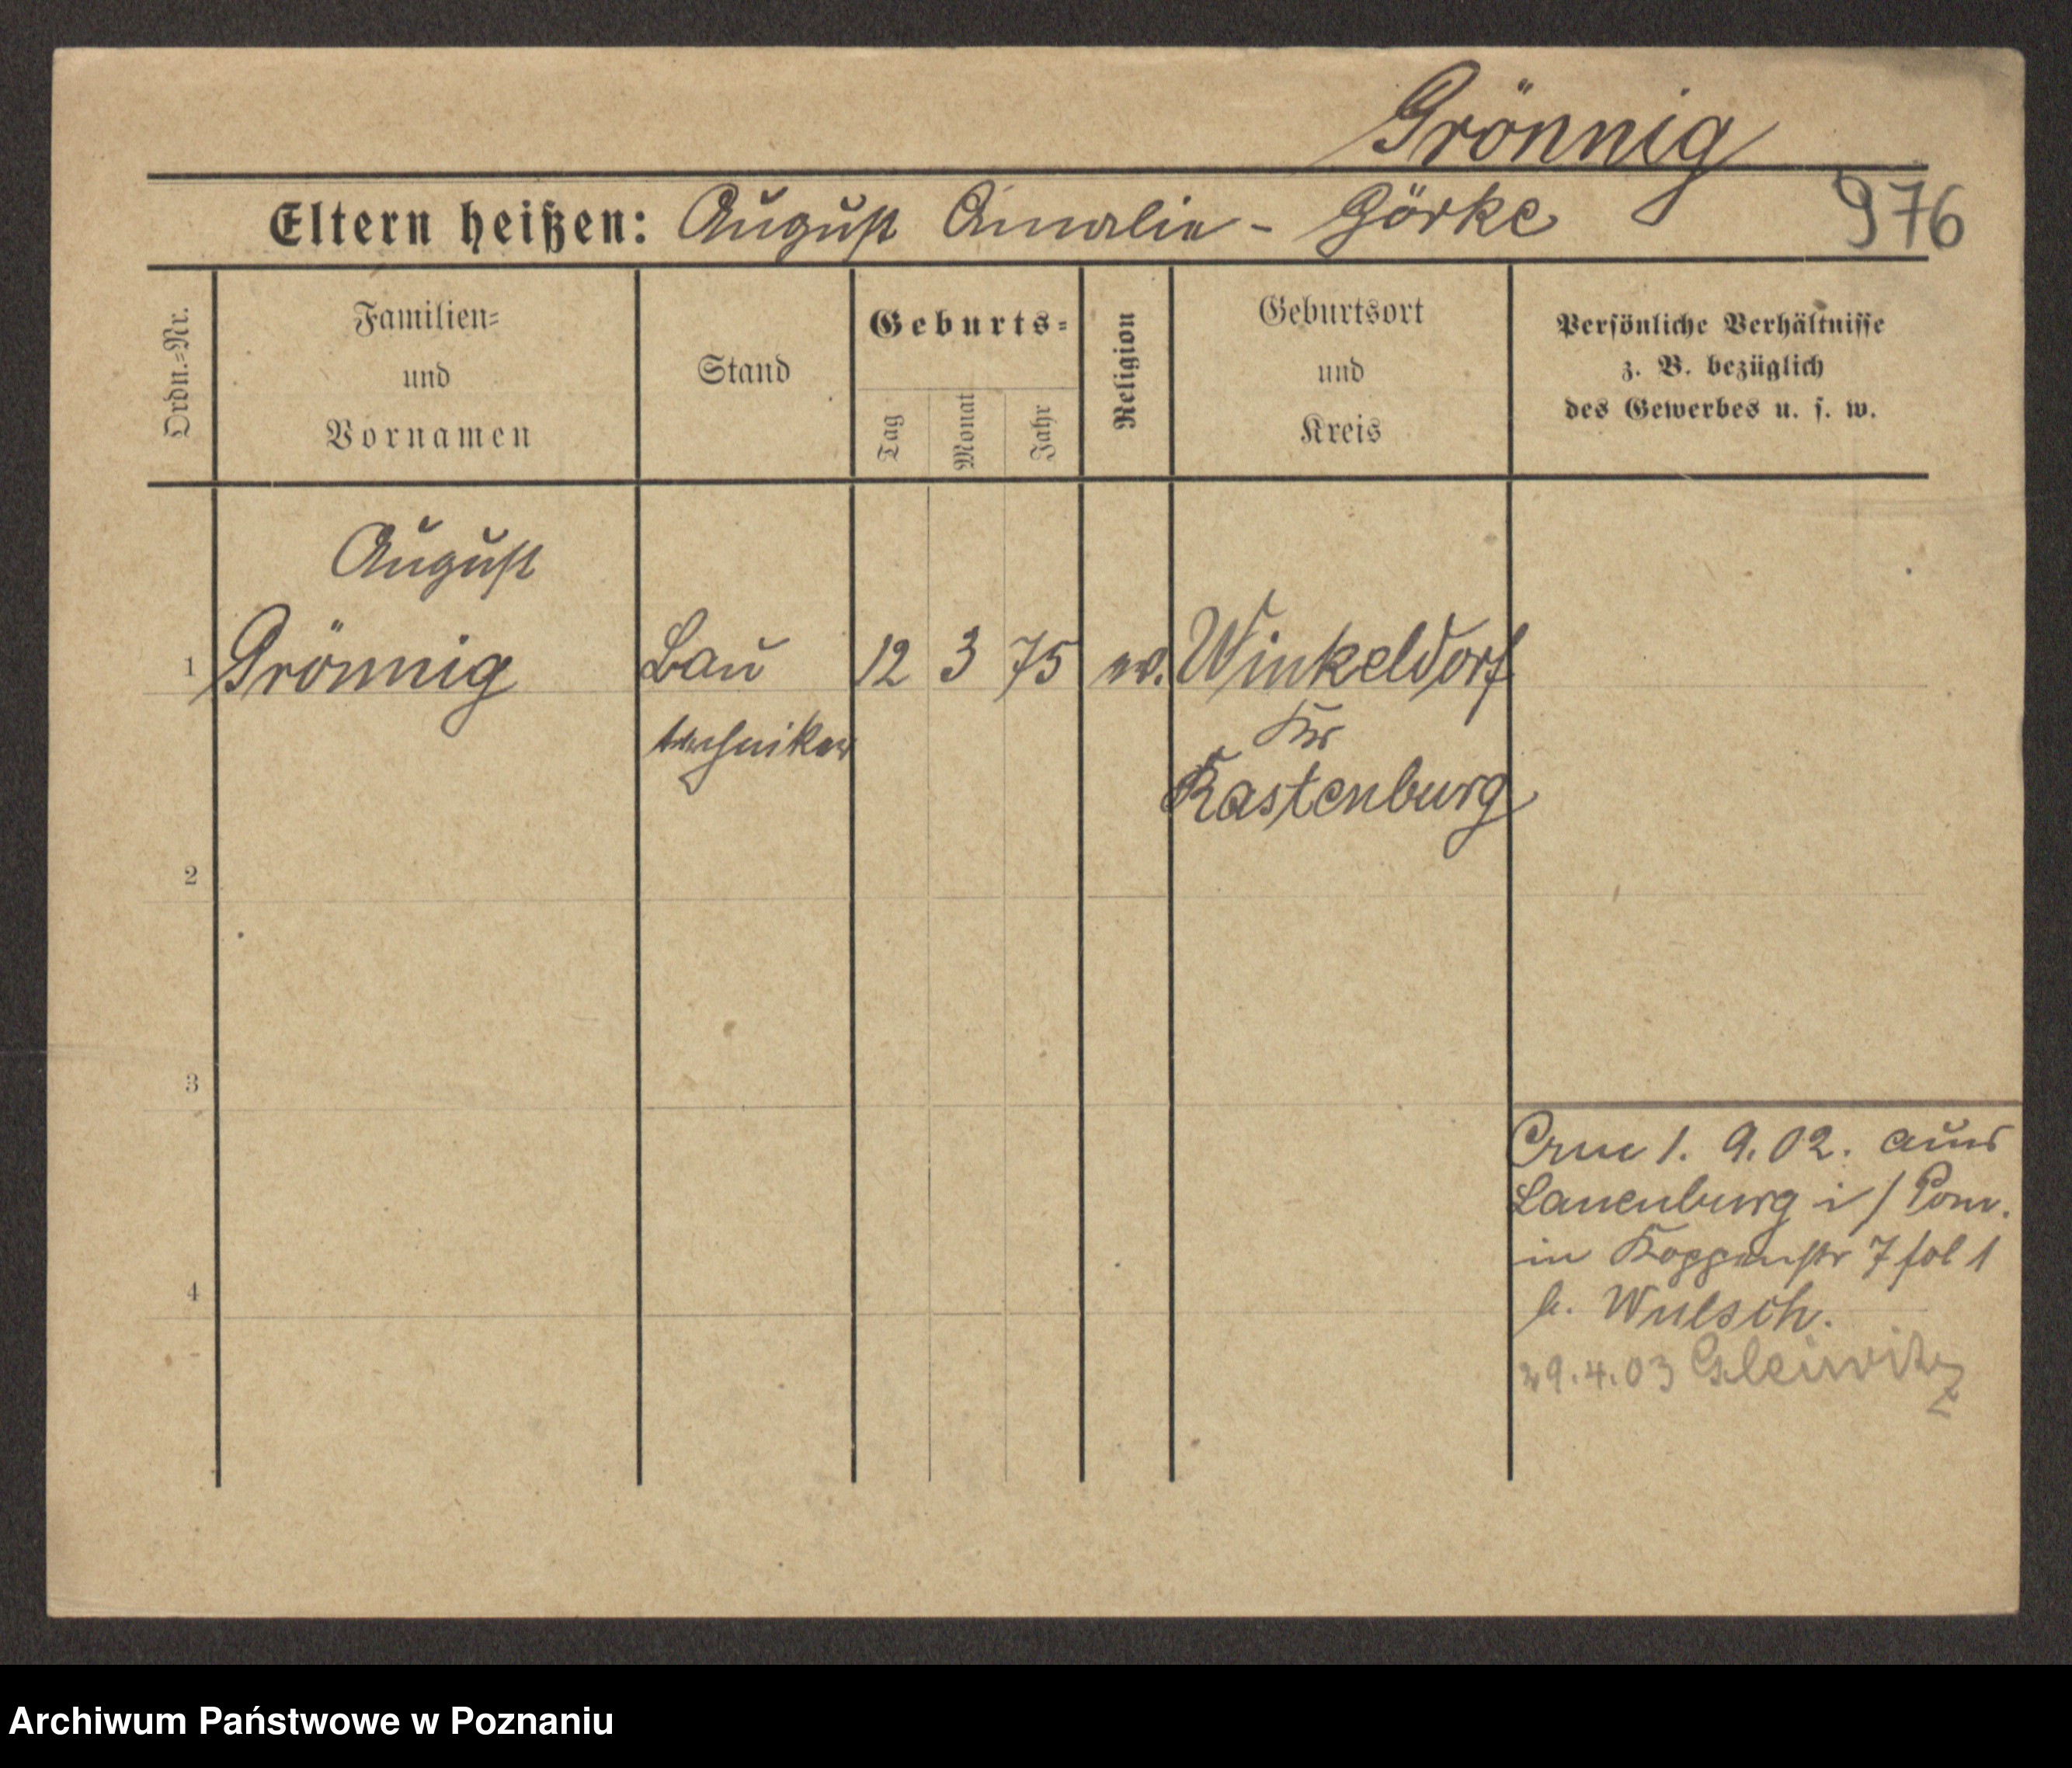 Grönnig
Eltern heißen: August Amalie - Görke 976
Ordn.=Nr.
Familien=
und
Vornamen
Stand
Geburts=
Tag
Monat
Jahr
Religion
Geburtsort
und
Kreis
Persönliche Verhältnisse
z. B. bezüglich
des Gewerbes u. s. w.
August
1 Grönnig Bau 12 3 75 ev. Winkeldorf
techniker Kr
Rastenburg
2
3
1. 9.02. aus
Lauenburg i/Pom.
in Koppenstr 7 fol 1
b. Wulsch.
29.4.03 Gleiwitz
4
Archiwum Państwowe w Poznaniu